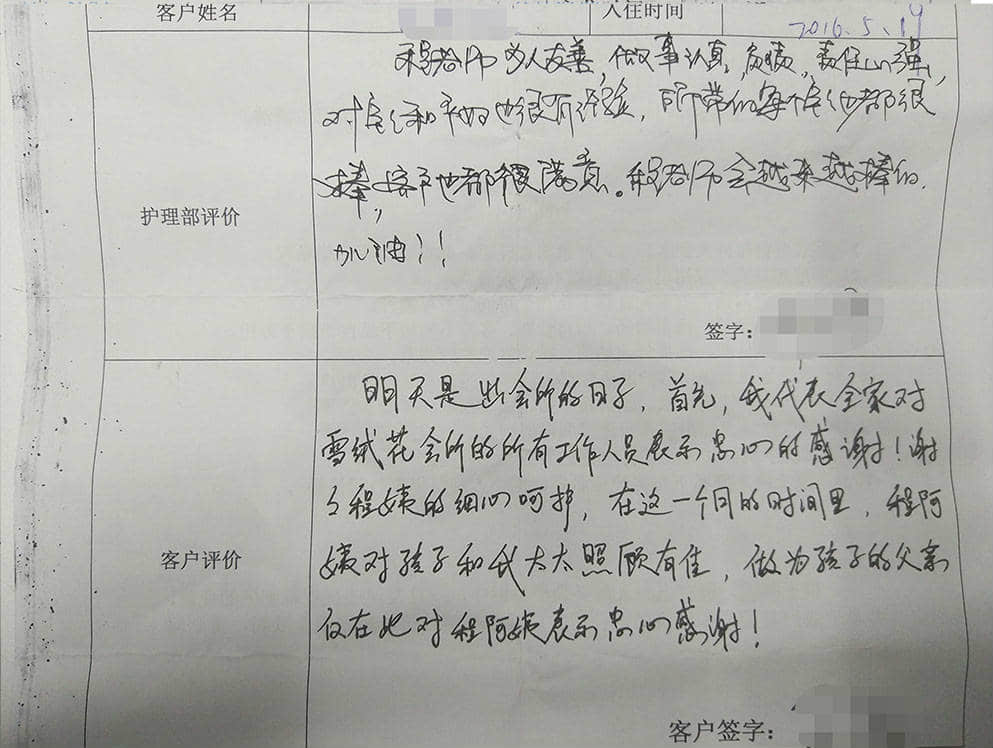 客户姓名 入住时间 2016.5.19
程老师为人友善，做事认真，负责，责任心强，
对宝宝和妈妈也很有经验，所带的每个宝宝也都很
棒，客户也都很满意。程老师会越来越棒的，
护理部评价
加油！！
签字：
明天是出会所的日子，首先，我代表全家对
雪绒花会所的所有工作人员表示忠心的感谢！谢
谢程姨的细心呵护，在这一个月的时间里，程阿
客户评价
姨对孩子和我太太照顾有佳，做为孩子的父亲
仅在此对程阿姨表示忠心感谢！
客户签字：